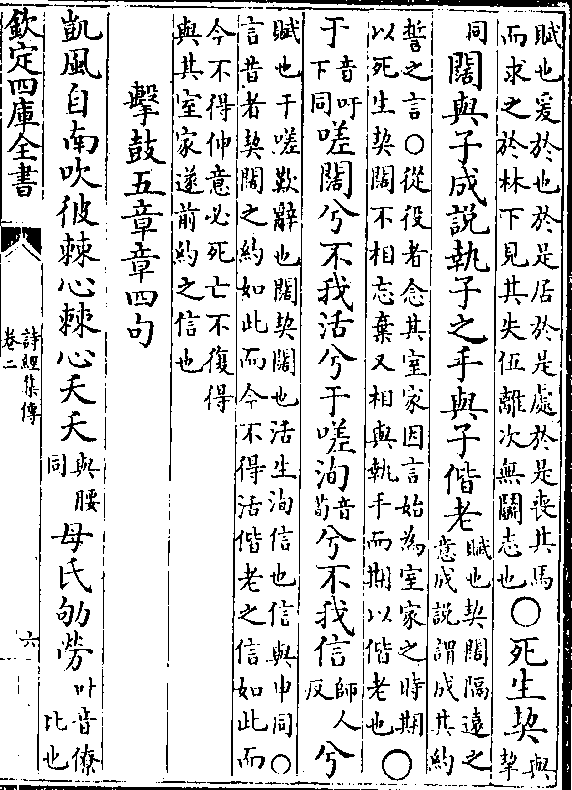 賦也爰於也於是居於是處於是喪其馬
而求之於林下見其失伍離次無鬭志也
○死生契與挈
同闊與子成說執子之手與子偕老賦也契闊隔遠之
意成說謂成其約
誓之言○從役者念其室家因言始為室家之時期
以死生契闊不相忘棄又相與執手而期以偕老也○
于音吁
下同嗟闊兮不我活兮于嗟洵音
荀兮不我信師人
反兮
賦也于嗟歎辭也闊契闊也活生洵信也信與申同○
言昔者契闊之約如此而今不得活偕老之信如此而
今不得伸意必死亡不復得
與其室家遂前約之信也
擊鼓五章章四句
凱風自南吹彼棘心棘心夭夭與腰
同母氏劬勞叶音僚
比也
欽定四庫全書
詩經集傳
卷二
六